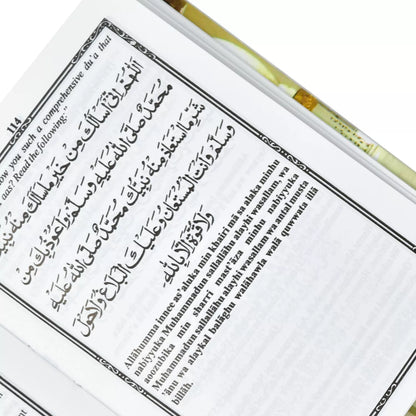 114
ow you such a comprehensive du'a that
as? Read the following:"
اَللّٰهُمَّ اِنِّيْ اَسْاَلُكَ مِنْ خَيْرِ مَا سَاَلَكَ مِنْهُ نَبِيُّكَ
مُحَمَّدٌ صَلَّى اللّٰهُ عَلَيْهِ وَسَلَّمَ وَاَعُوْذُبِكَ مِنْ
شَرِّ مَا اسْتَعَاذَ مِنْهُ نَبِيُّكَ مُحَمَّدٌ صَلَّى اللّٰهُ عَلَيْهِ
وَسَلَّمَ وَاَنْتَ الْمُسْتَعَانُ وَعَلَيْكَ الْبَلَاغُ وَلَا حَوْلَ
وَلَا قُوَّةَ اِلَّا بِاللّٰهِ۔
Allāhumma innee as'aluka min khairi mā sa alaka minhu
nabiyyuka Muhammadun sallallāhu alayhi wasallam, wa
aoozubika min sharri mast'āza minhu nabiyyuka
Muhammadun sallallāhu alayhi wasallam wa antal musta
'ānu wa alaykal balāghu walāhawla walā quwwata illā
billāh.